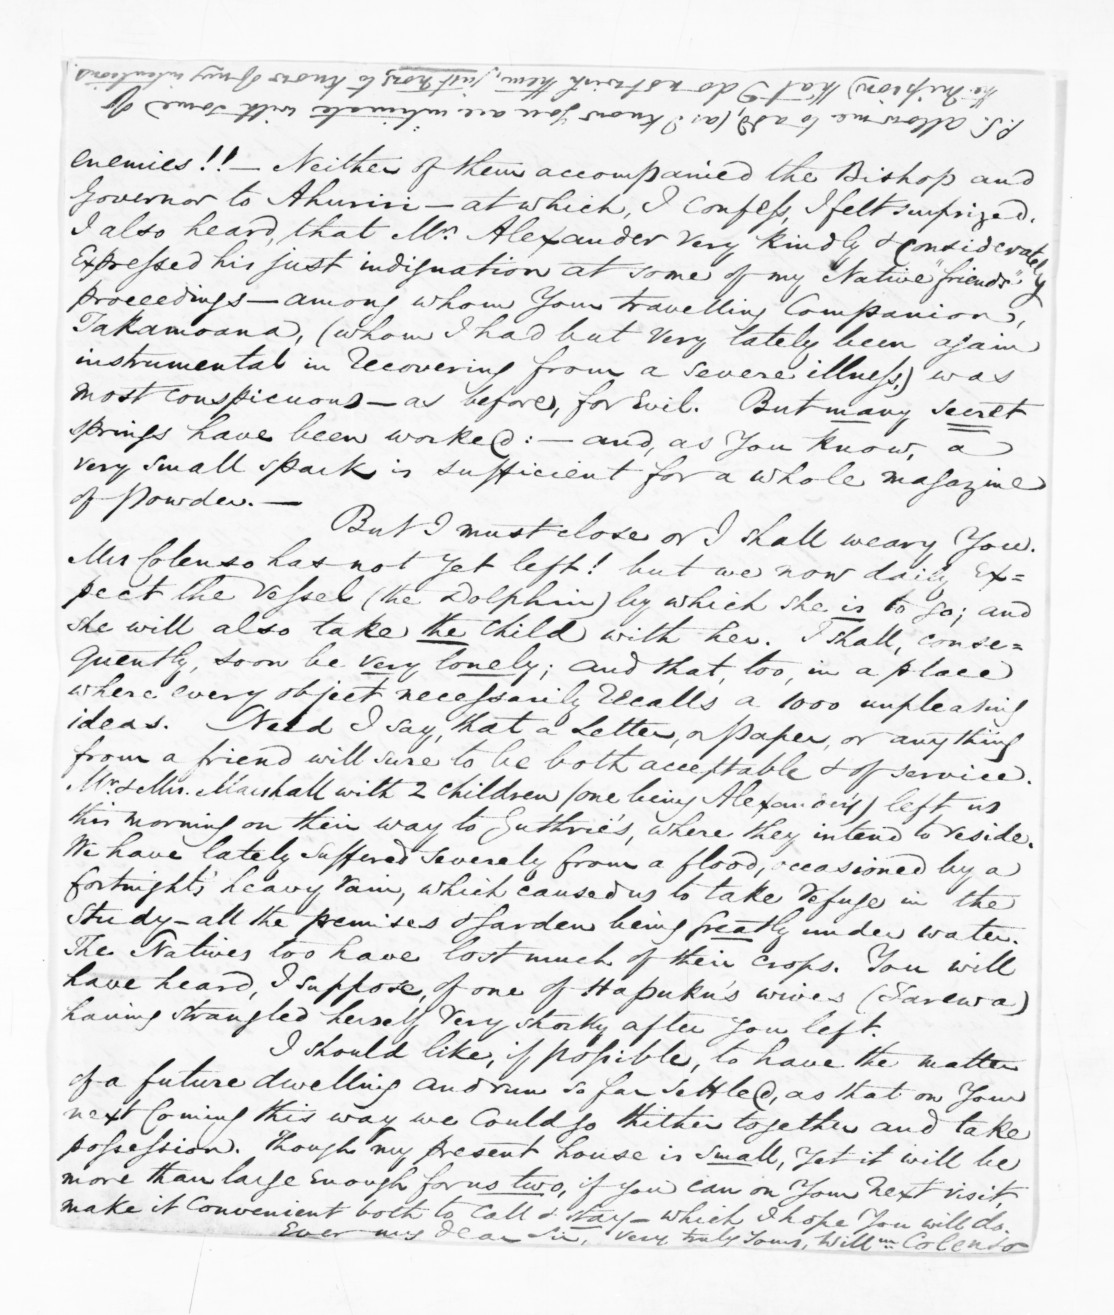 P.S. allow me to add, (as I know you are intimate with some of
the Mission) that I do not wish them, just now, to know of my intentions.
enemies!! — Neither of them accompanied the Bishop and
Governor to Ahuriri — at which, I confess, I felt surprized.
I also heard, that Mr. Alexander very kindly & considerately
expressed his just indignation at some of my Native "friends'"
proceedings — among whom your travelling Companion,
Takamoana, (whom I had but very lately been again
instrumental in recovering from a severe illness,) was
most conspicuous — as before, for Evil. But many secret
springs have been worked: — and, as you know, a
very small spark is sufficient for a whole magazine
of powder. —
But I must close or I shall weary you.
Mrs Colenso has not yet left! but we now daily ex=
pect the Vessel (the Dolphin) by which she is to go; and
she will also take the child with her. I shall, conse=
quently, soon be very lonely; and that, too, in a place
where every object necessarily recalls a 1000 unpleasing
ideas. Need I say, that a Letter, or paper, or anything
from a friend will sure to be both acceptable & of service.
Mr. & Mrs. Marshall with 2 children (one being Alexander's) left us
this morning on their way to Guthrie's, where they intend to reside.
We have lately suffered severely from a flood, occasioned by a
fortnight's heavy rain, which caused us to take refuge in the
Study — all the premises & garden being greatly under water.
The Natives too have lost much of their crops. You will
have heard, I suppose, of one of Hapuku's wives (Tarewa)
having strangled herself very shortly after you left.
I should like, if possible, to have the matter
of a future dwelling and run so far settled, as that on your
next coming this way we could go thither together and take
possession. Though my present house is small, yet it will be
more than large enough for us two, if you can on your next visit,
make it convenient both to call & stay — which I hope you will do.
Ever my dear Sir, very truly yours, Willm Colenso